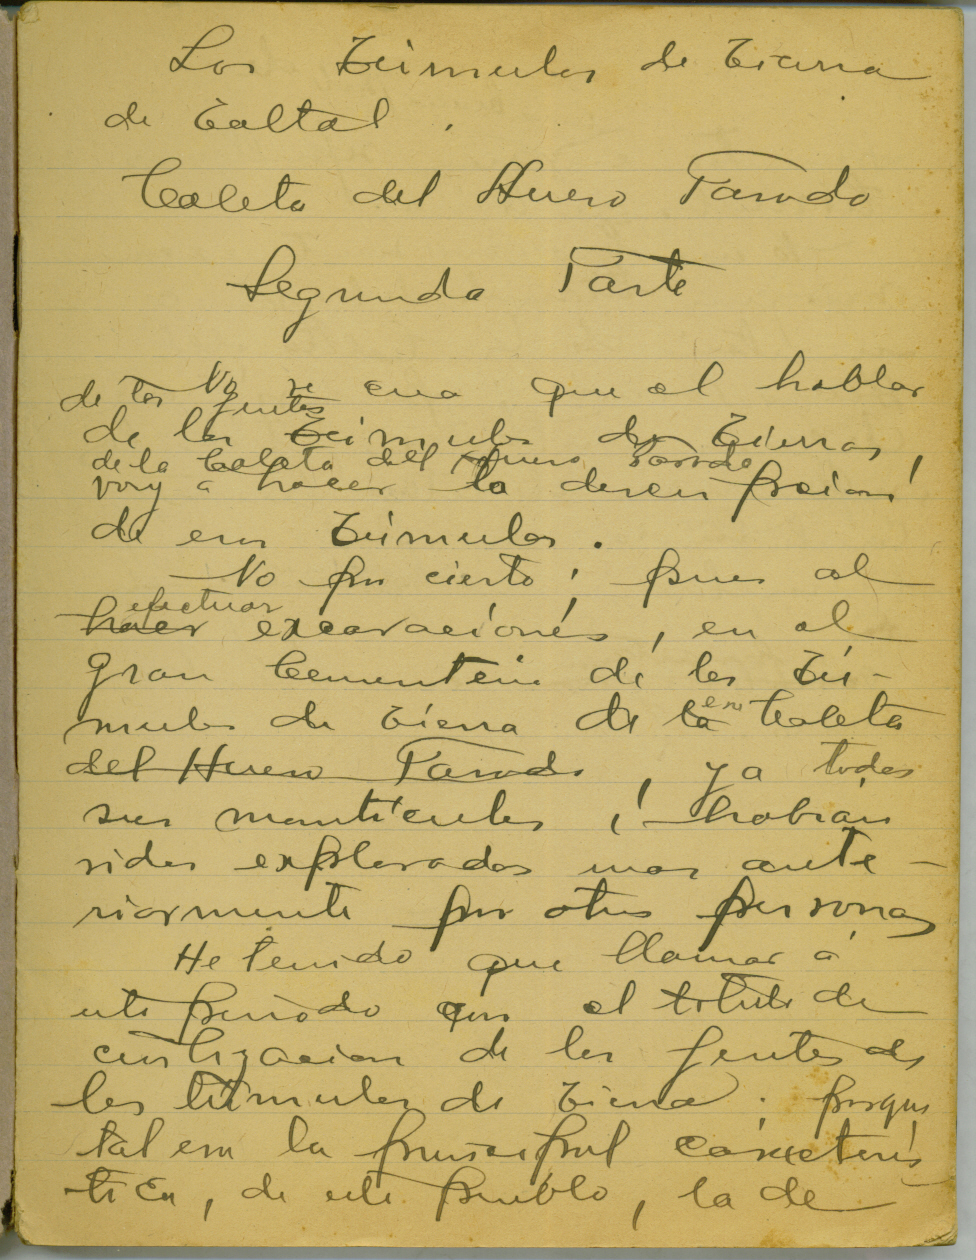 Los Túmulos de Tierra
de Taltal.
Caleta del Hueso Parado
Segunda Parte
No se crea que al hablar
de las gentes
de los Túmulos de Tierras,
de la Caleta del Hueso Parado
voy a hacer la descripcion
de esos Túmulos.
No por cierto; pues al
efectuar
hacer excavaciónes, en el
gran Cementerio de los Tú-
mulos de Tierra de la esa Caleta
del Hueso Parado, ya todos
sus montículos, habian
sidos explorados mas ante-
riormente por otras personas
He tenido que llamar á
este periodo con el titulo de
civilizacion de las gentes de
los túmulos de Tierra; porque
tal era la principal caracterís
tica, de este pueblo, la de